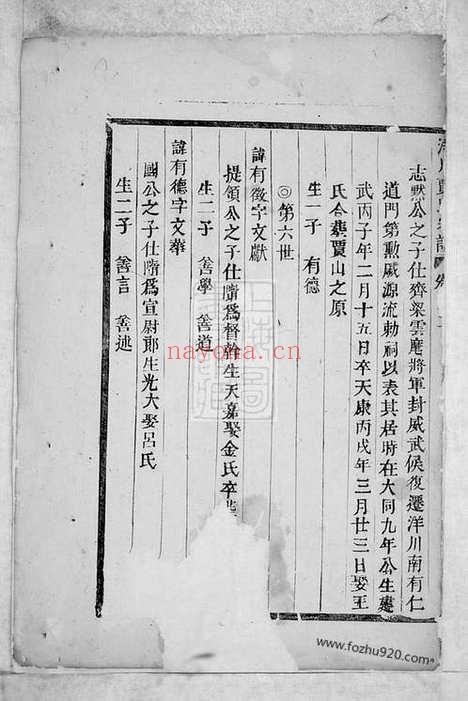 志默公之子仕齊梁雲麾將軍封威武侯復遷洋川南有仁
道門第勲威源流勅祠以表其居時在大同九年公生建
武丙子年二月十五日卒天康丙戌年三月廿三日娶王
氏合葬賈山之原
生一子 有德
◎第六世
諱有徵字文獻
提領公之子仕隋爲督幹生天嘉娶金氏卒
生二子 善學 善道
諱有德字文華
國公之子仕隋爲宣尉郎生光大娶呂氏
生二子 善言 善述
nayona.cn
www.fozhu920.com